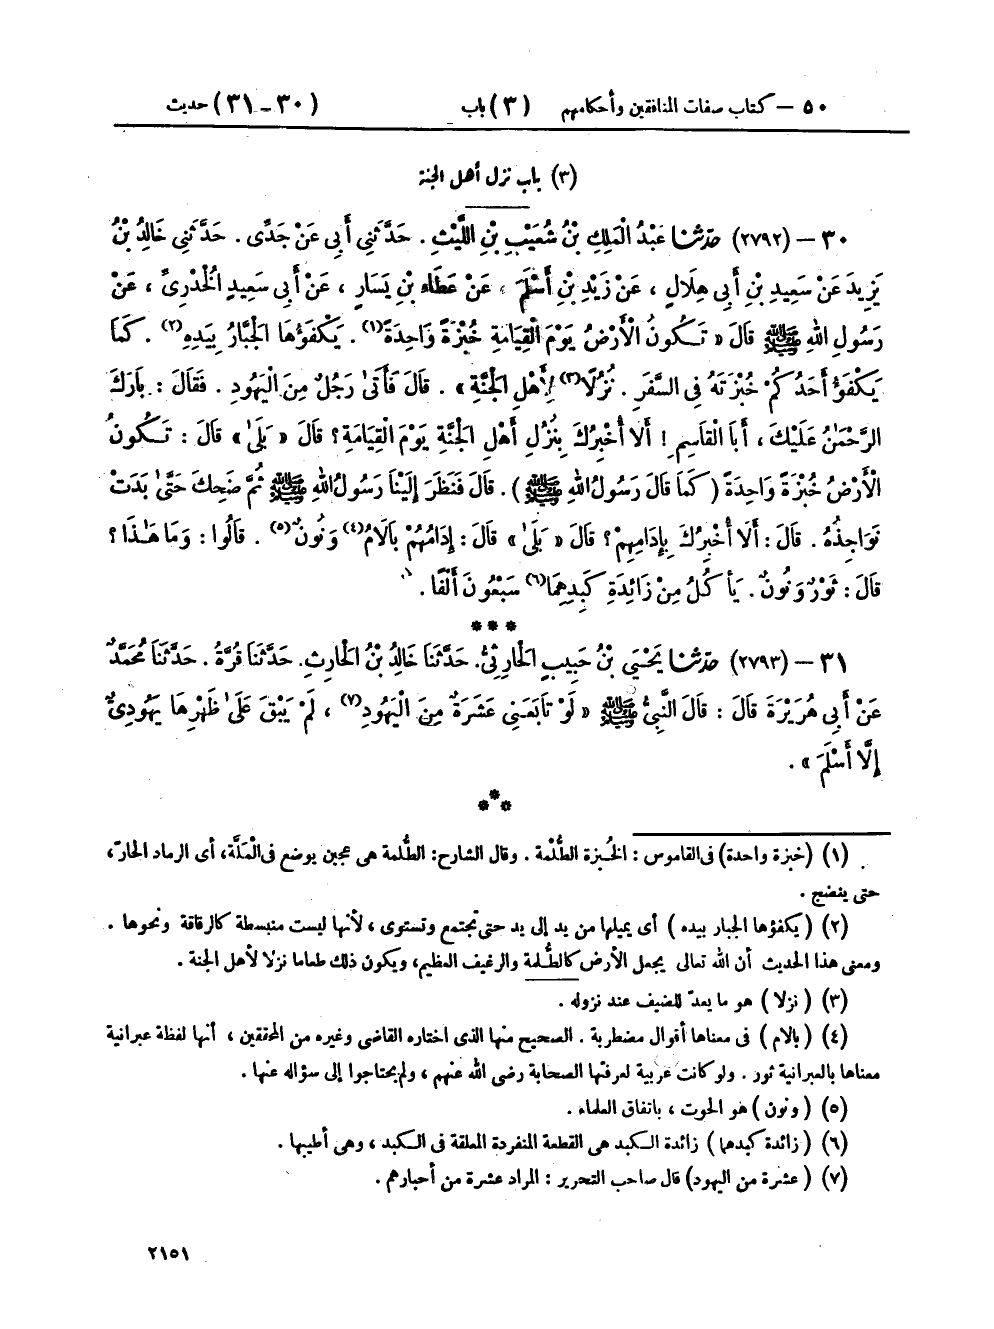 ٥٠ – كتاب صفات المنافقين وأحكامهم (٣) باب (٣٠ – ٣١) حديث
(٣) باب نزل أهل الجنة
٣٠ – (٢٧٩٢) حدثنا عَبْدُ الْمَلِكِ بْنُ شُعَيْبِ بْنِ اللَّيْثِ . حَدَّثَنِي أَبِي عَنْ جَدِّى . حَدَّثَنِي خَالِدُ بْنُ
يَزِيدَ عَنْ سَعِيدِ بْنِ أَبِي هِلَالٍ ، عَنْ زَيْدِ بْنِ أَسْلَمَ ، عَنْ عَطَاءِ بْنِ يَسَارٍ ، عَنْ أَبِي سَعِيدٍ الْخُدْرِىِّ ، عَنْ
رَسُولِ اللهِ ﷺ قَالَ « تَكُونُ الْأَرْضُ يَوْمَ الْقِيَامَةِ خُبْزَةً وَاحِدَةً(١) . يَكْفَؤُهَا الْجَبَّارُ بِيَدِهِ(٢) . كَمَا
يَكْفَؤُ أَحَدُكُمْ خُبْزَتَهُ فِي السَّفَرِ . نُزُلًا(٣) لِأَهْلِ الْجَنَّةِ » . قَالَ فَأَتَىٰ رَجُلٌ مِنَ الْيَهُودِ . فَقَالَ : بَارَكَ
الرَّحْمَٰنُ عَلَيْكَ ، أَبَا الْقَاسِمِ ! أَلَا أُخْبِرُكَ بِنُزُلِ أَهْلِ الْجَنَّةِ يَوْمَ الْقِيَامَةِ ؟ قَالَ « بَلَىٰ » قَالَ : تَكُونُ
الْأَرْضُ خُبْزَةً وَاحِدَةً ( كَمَا قَالَ رَسُولُ اللهِ ﷺ ) . قَالَ فَنَظَرَ إِلَيْنَا رَسُولُ اللهِ ﷺ ثُمَّ ضَحِكَ حَتَّىٰ بَدَتْ
نَوَاجِذُهُ . قَالَ : أَلَا أُخْبِرُكَ بِإِدَامِهِمْ ؟ قَالَ « بَلَىٰ » قَالَ : إِدَامُهُمْ بَالَامُ(٤) وَنُونٌ(٥) . قَالُوا : وَمَا هَٰذَا ؟
قَالَ : ثَوْرٌ وَنُونٌ . يَأْكُلُ مِنْ زَائِدَةِ كَبِدِهِمَا(٦) سَبْعُونَ أَلْفًا .
***
٣١ – (٢٧٩٣) حدثنا يَحْيَىٰ بْنُ حَبِيبٍ الْحَارِثِيُّ . حَدَّثَنَا خَالِدُ بْنُ الْحَارِثِ . حَدَّثَنَا قُرَّةُ . حَدَّثَنَا مُحَمَّدٌ
عَنْ أَبِي هُرَيْرَةَ قَالَ : قَالَ النَّبِيُّ ﷺ « لَوْ تَابَعَنِي عَشَرَةٌ مِنَ الْيَهُودِ(٧) ، لَمْ يَبْقَ عَلَىٰ ظَهْرِهَا يَهُودِىٌّ
إِلَّا أَسْلَمَ » .
***
(١) (خبزة واحدة) فى القاموس : الخُبزة الطُّلْمة . وقال الشارح: الطُّلمة هى عجين يوضع فى الْمَلَّة، أى الرماد الحارّ،
حتى ينضج .
(٢) ( يكفؤها الجبار بيده ) أى يميلها من يد إلى يد حتى تجتمع وتستوى ، لأنها ليست منبسطة كالرقاقة ونحوها .
ومعنى هذا الحديث أن الله تعالى يجعل الأرض كالطُّلمة والرغيف العظيم، ويكون ذلك طعاما نزلا لأهل الجنة .
(٣) ( نزلا ) هو ما يعدّ للضيف عند نزوله .
(٤) ( بالام ) فى معناها أقوال مضطربة . الصحيح منها الذى اختاره القاضى وغيره من المحققين ، أنها لفظة عبرانية
معناها بالعبرانية ثور . ولو كانت عربية لعرفتها الصحابة رضى الله عنهم ، ولم يحتاجوا إلى سؤاله عنها .
(٥) ( ونون ) هو الحوت ، باتفاق العلماء .
(٦) ( زائدة كبدهما ) زائدة الكبد هى القطعة المنفردة المعلقة فى الكبد ، وهى أطيبها .
(٧) ( عشرة من اليهود) قال صاحب التحرير : المراد عشرة من أحبارهم .
٢١٥١